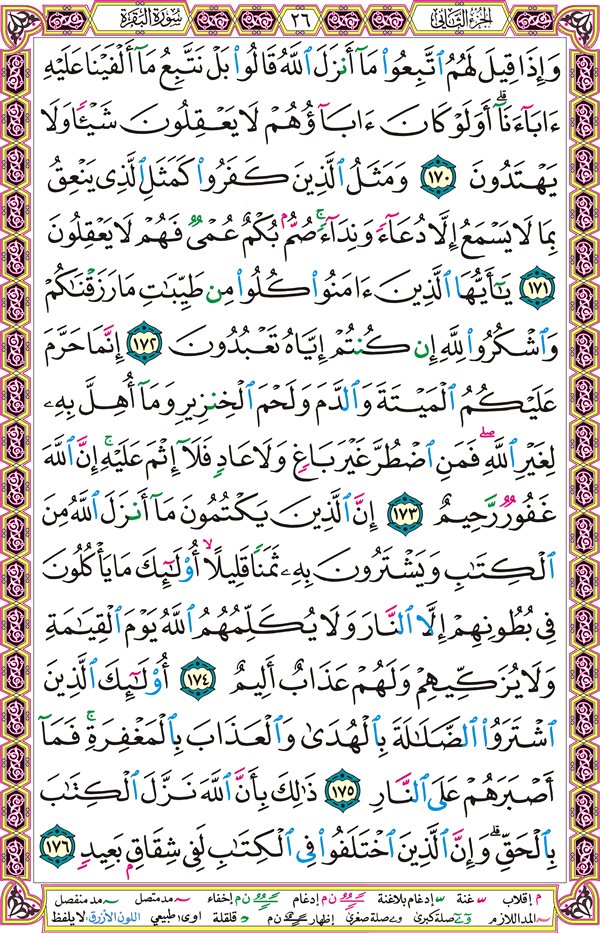 الجزء الثاني ٢٦ سورة البقرة
وَإِذَا قِيلَ لَهُمُ ٱتَّبِعُوا۟ مَآ أَنزَلَ ٱللَّهُ قَالُوا۟ بَلْ نَتَّبِعُ مَآ أَلْفَيْنَا عَلَيْهِ
ءَابَآءَنَآ ۗ أَوَلَوْ كَانَ ءَابَآؤُهُمْ لَا يَعْقِلُونَ شَيْـًٔا وَلَا
يَهْتَدُونَ ١٧٠ وَمَثَلُ ٱلَّذِينَ كَفَرُوا۟ كَمَثَلِ ٱلَّذِى يَنْعِقُ
بِمَا لَا يَسْمَعُ إِلَّا دُعَآءً وَنِدَآءً ۚ صُمٌّۢ بُكْمٌ عُمْىٌ فَهُمْ لَا يَعْقِلُونَ
١٧١ يَـٰٓأَيُّهَا ٱلَّذِينَ ءَامَنُوا۟ كُلُوا۟ مِن طَيِّبَـٰتِ مَا رَزَقْنَـٰكُمْ
وَٱشْكُرُوا۟ لِلَّهِ إِن كُنتُمْ إِيَّاهُ تَعْبُدُونَ ١٧٢ إِنَّمَا حَرَّمَ
عَلَيْكُمُ ٱلْمَيْتَةَ وَٱلدَّمَ وَلَحْمَ ٱلْخِنزِيرِ وَمَآ أُهِلَّ بِهِۦ
لِغَيْرِ ٱللَّهِ ۖ فَمَنِ ٱضْطُرَّ غَيْرَ بَاغٍ وَلَا عَادٍ فَلَآ إِثْمَ عَلَيْهِ ۚ إِنَّ ٱللَّهَ
غَفُورٌ رَّحِيمٌ ١٧٣ إِنَّ ٱلَّذِينَ يَكْتُمُونَ مَآ أَنزَلَ ٱللَّهُ مِنَ
ٱلْكِتَـٰبِ وَيَشْتَرُونَ بِهِۦ ثَمَنًا قَلِيلًا ۙ أُو۟لَـٰٓئِكَ مَا يَأْكُلُونَ
فِى بُطُونِهِمْ إِلَّا ٱلنَّارَ وَلَا يُكَلِّمُهُمُ ٱللَّهُ يَوْمَ ٱلْقِيَـٰمَةِ
وَلَا يُزَكِّيهِمْ وَلَهُمْ عَذَابٌ أَلِيمٌ ١٧٤ أُو۟لَـٰٓئِكَ ٱلَّذِينَ
ٱشْتَرَوُا۟ ٱلضَّلَـٰلَةَ بِٱلْهُدَىٰ وَٱلْعَذَابَ بِٱلْمَغْفِرَةِ ۚ فَمَآ
أَصْبَرَهُمْ عَلَى ٱلنَّارِ ١٧٥ ذَٰلِكَ بِأَنَّ ٱللَّهَ نَزَّلَ ٱلْكِتَـٰبَ
بِٱلْحَقِّ ۗ وَإِنَّ ٱلَّذِينَ ٱخْتَلَفُوا۟ فِى ٱلْكِتَـٰبِ لَفِى شِقَاقٍۭ بَعِيدٍ ١٧٦
م إقلاب غنة إدغام بلاغنة ن م إدغام ن م إخفاء مد متصل مد منفصل
المد اللازم صلة كبرى صلة صغرى إظهار ن م قلقلة اوى: طبيعي اللون الأزرق: لا يلفظ